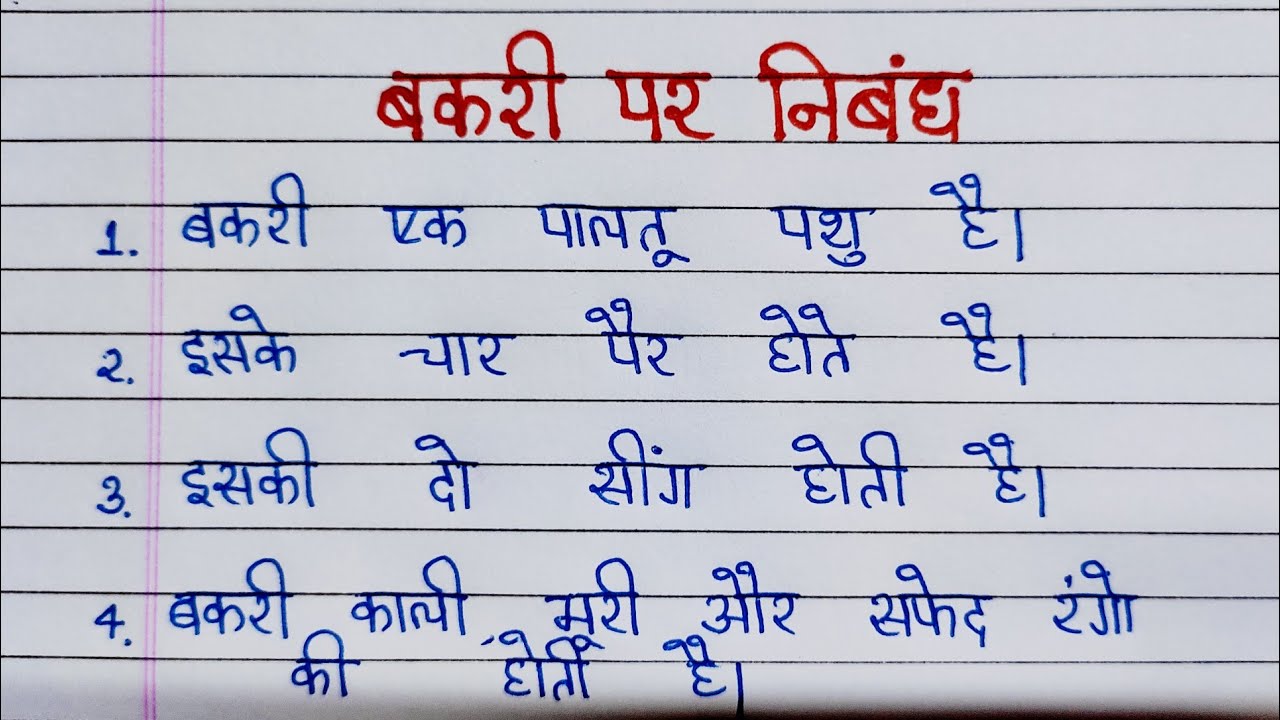 बकरी पर निबंध
1. बकरी एक पालतू पशु है।
2. इसके चार पैर होते है।
3. इसकी दो सींग होती है।
4. बकरी काली, भूरी और सफेद रंगो
की होती है।